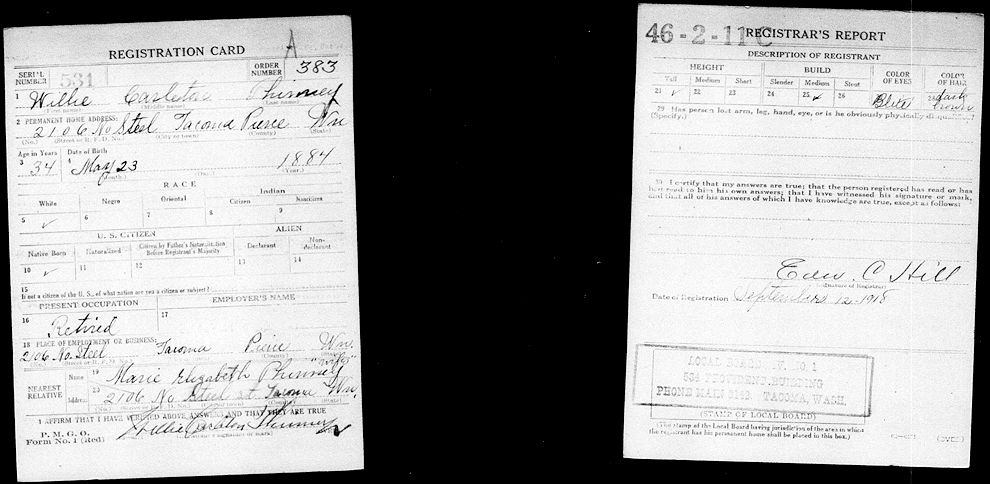 REGISTRATION CARD
A
SERIAL NUMBER 531
ORDER NUMBER 383
1 Willie Carleton Phinney
(First name) (Middle name) (Last name)
2 PERMANENT HOME ADDRESS:
2106 No Steel Tacoma Pierce Wn
(No.) (Street or R. F. D. No.) (City or town) (County) (State)
Age in Years Date of Birth
3 34 4 May 23 1884
(Month.) (Day.) (Year.)
RACE
White Negro Oriental Indian
Citizen Noncitizen
5 ✓ 6 7 8 9
U. S. CITIZEN ALIEN
Native Born Naturalized Citizen by Father's Naturalization Before Registrant's Majority Declarant Non-declarant
10 ✓ 11 12 13 14
15
If not a citizen of the U. S., of what nation are you a citizen or subject?
PRESENT OCCUPATION EMPLOYER'S NAME
16 Retired 17
18 PLACE OF EMPLOYMENT OR BUSINESS:
2106 No. Steel Tacoma Pierce Wn.
(No.) (Street or R. F. D. No.) (County) (State)
NEAREST RELATIVE
Name 19 Marie Elizabeth Phinney "wife"
Address 20 2106 No Steel st Tacoma Wn.
I AFFIRM THAT I HAVE VERIFIED ABOVE ANSWERS AND THAT THEY ARE TRUE
P. M. G. O.
Form No. 1 (Red)
Willie Carleton Phinney
(Registrant's signature or mark)
46-2-11 C
REGISTRAR'S REPORT
DESCRIPTION OF REGISTRANT
HEIGHT BUILD COLOR OF EYES COLOR OF HAIR
Tall Medium Short Slender Medium Stout
21 ✓ 22 23 24 25 ✓ 26 27 Blue 28 dark brown
29 Has person lost arm, leg, hand, eye, or is he obviously physically disqualified?
(Specify.)
30 I certify that my answers are true; that the person registered has read or has had read to him his own answers; that I have witnessed his signature or mark, and that all of his answers of which I have knowledge are true, except as follows:
Edw. C Hill
(Signature of Registrar)
Date of Registration September 12-1918
LOCAL BOARD DIV. NO. 1
534 PROVIDENT BUILDING
PHONE MAIN TACOMA, WASH.
(STAMP OF LOCAL BOARD)
(The stamp of the Local Board having jurisdiction of the area in which the registrant has his permanent home shall be placed in this box.)
(OVER)